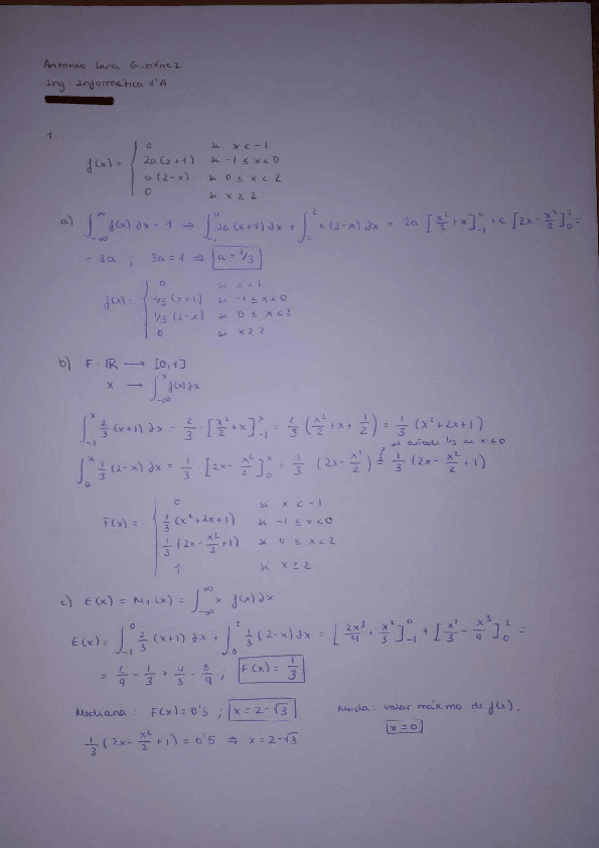 Antonio Lara Gutiérrez
Ing. Informática 1ºA
1.
f(x) = { 0 si x < -1
2a(x+1) si -1 ≤ x < 0
a(2-x) si 0 ≤ x < 2
0 si x ≥ 2
a) ∫_{-∞}^{∞} f(x) dx = 1 ⇒ ∫_{-1}^{0} 2a(x+1) dx + ∫_{0}^{2} a(2-x) dx = 2a [x²/2 + x]_{-1}^{0} + a [2x - x²/2]_{0}^{2} =
= 3a ; 3a = 1 ⇒ a = 1/3
f(x) = { 0 si x < -1
2/3 (x+1) si -1 ≤ x < 0
1/3 (2-x) si 0 ≤ x < 2
0 si x ≥ 2
b) F: ℝ → [0,1]
x → ∫_{-∞}^{x} f(x) dx
∫_{-1}^{x} 2/3 (x+1) dx = 2/3 · [x²/2 + x]_{-1}^{x} = 2/3 (x²/2 + x + 1/2) = 1/3 (x² + 2x + 1)
se añade 1/3 de x ≤ 0
∫_{0}^{x} 1/3 (2-x) dx = 1/3 · [2x - x²/2]_{0}^{x} = 1/3 · (2x - x²/2) = 1/3 (2x - x²/2 + 1)
F(x) = { 0 si x < -1
1/3 (x² + 2x + 1) si -1 ≤ x < 0
1/3 (2x - x²/2 + 1) si 0 ≤ x < 2
1 si x ≥ 2
c) E(x) = M₁(x) = ∫_{-∞}^{∞} x f(x) dx
E(x) = ∫_{-1}^{0} 2/3 (x+1) dx + ∫_{0}^{2} 1/3 (2-x) dx = [2x³/9 + x²/3]_{-1}^{0} + [x²/3 - x³/9]_{0}^{2} =
= 2/9 - 1/3 + 4/3 - 8/9 ; E(x) = 1/3
Mediana: F(x) = 0'5 ; x = 2-√3
Moda: valor máximo de f(x).
x = 0
1/3 (2x - x²/2 + 1) = 0'5 ⇒ x = 2-√3